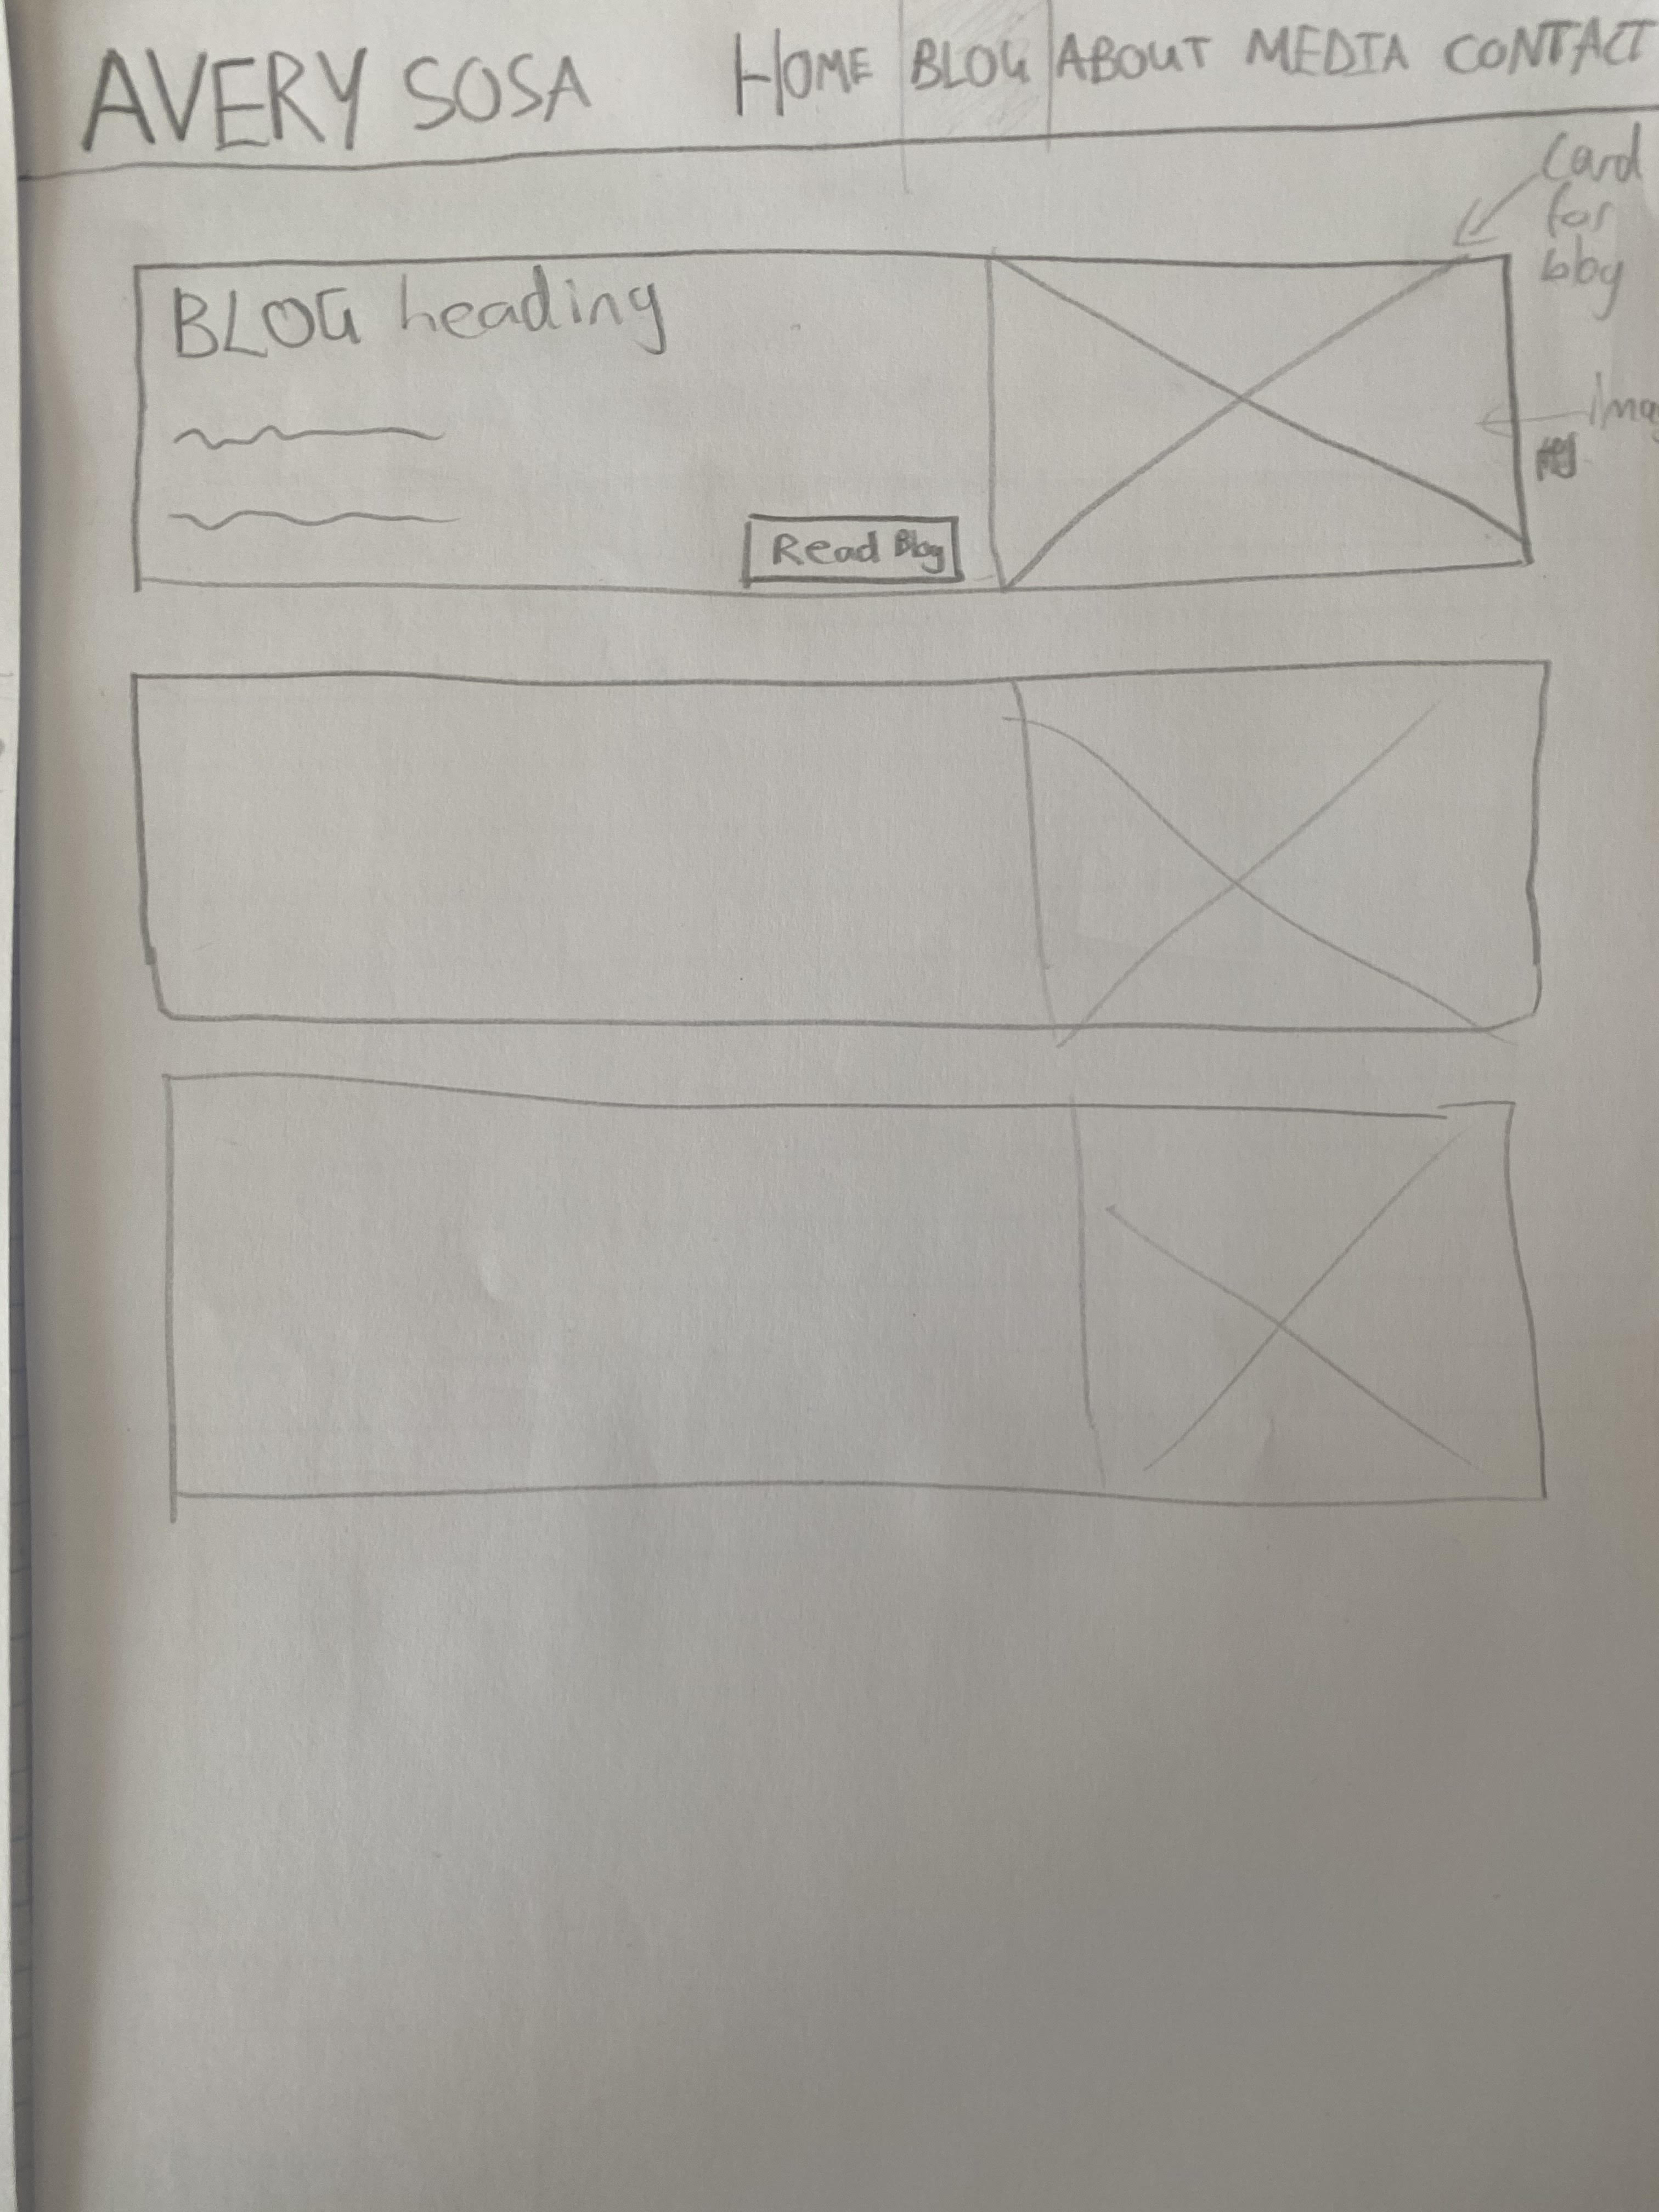 AVERY SOSA HOME BLOG ABOUT MEDIA CONTACT
Card
for
blog
BLOG heading
Read Blog